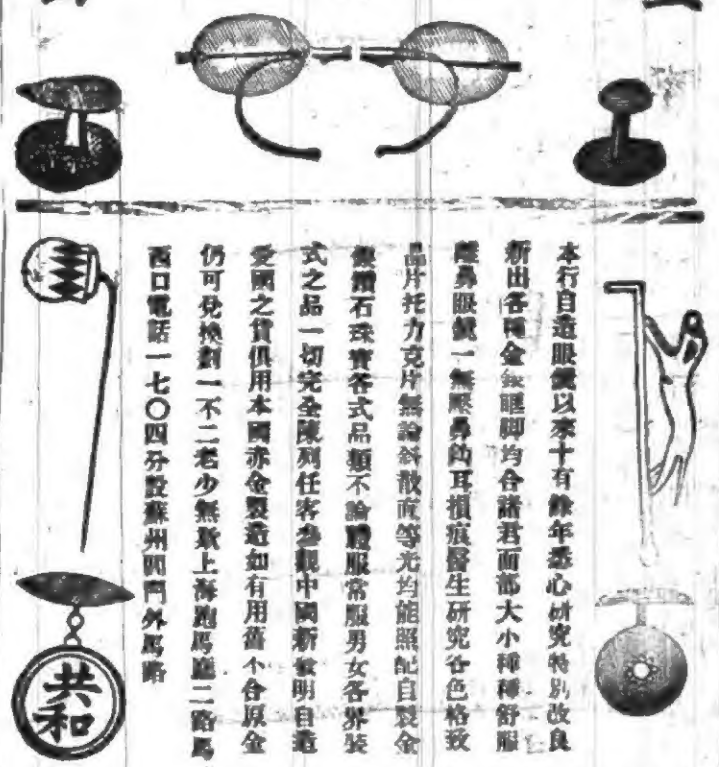 本行自造眼鏡以來十有餘年悉心研究特別改良
新出各種金銀眶脚均合諸君面部大小種種舒服
離鼻眼鏡一無壓鼻鈎耳損痕醫生研究各色格致
晶片托力克片無論斜散直等光均能照配自製金
銀鑽石珠寶各式品類不論禮服常服男女各界裝
式之品一切完全陳列任客參觀中國新發明自造
愛國之貨俱用本國赤金製造如有用舊不合原金
仍可兌換劃一不二老少無欺上海跑馬廳二路馬
西口電話一七〇四分設蘇州閶門外馬路
共和